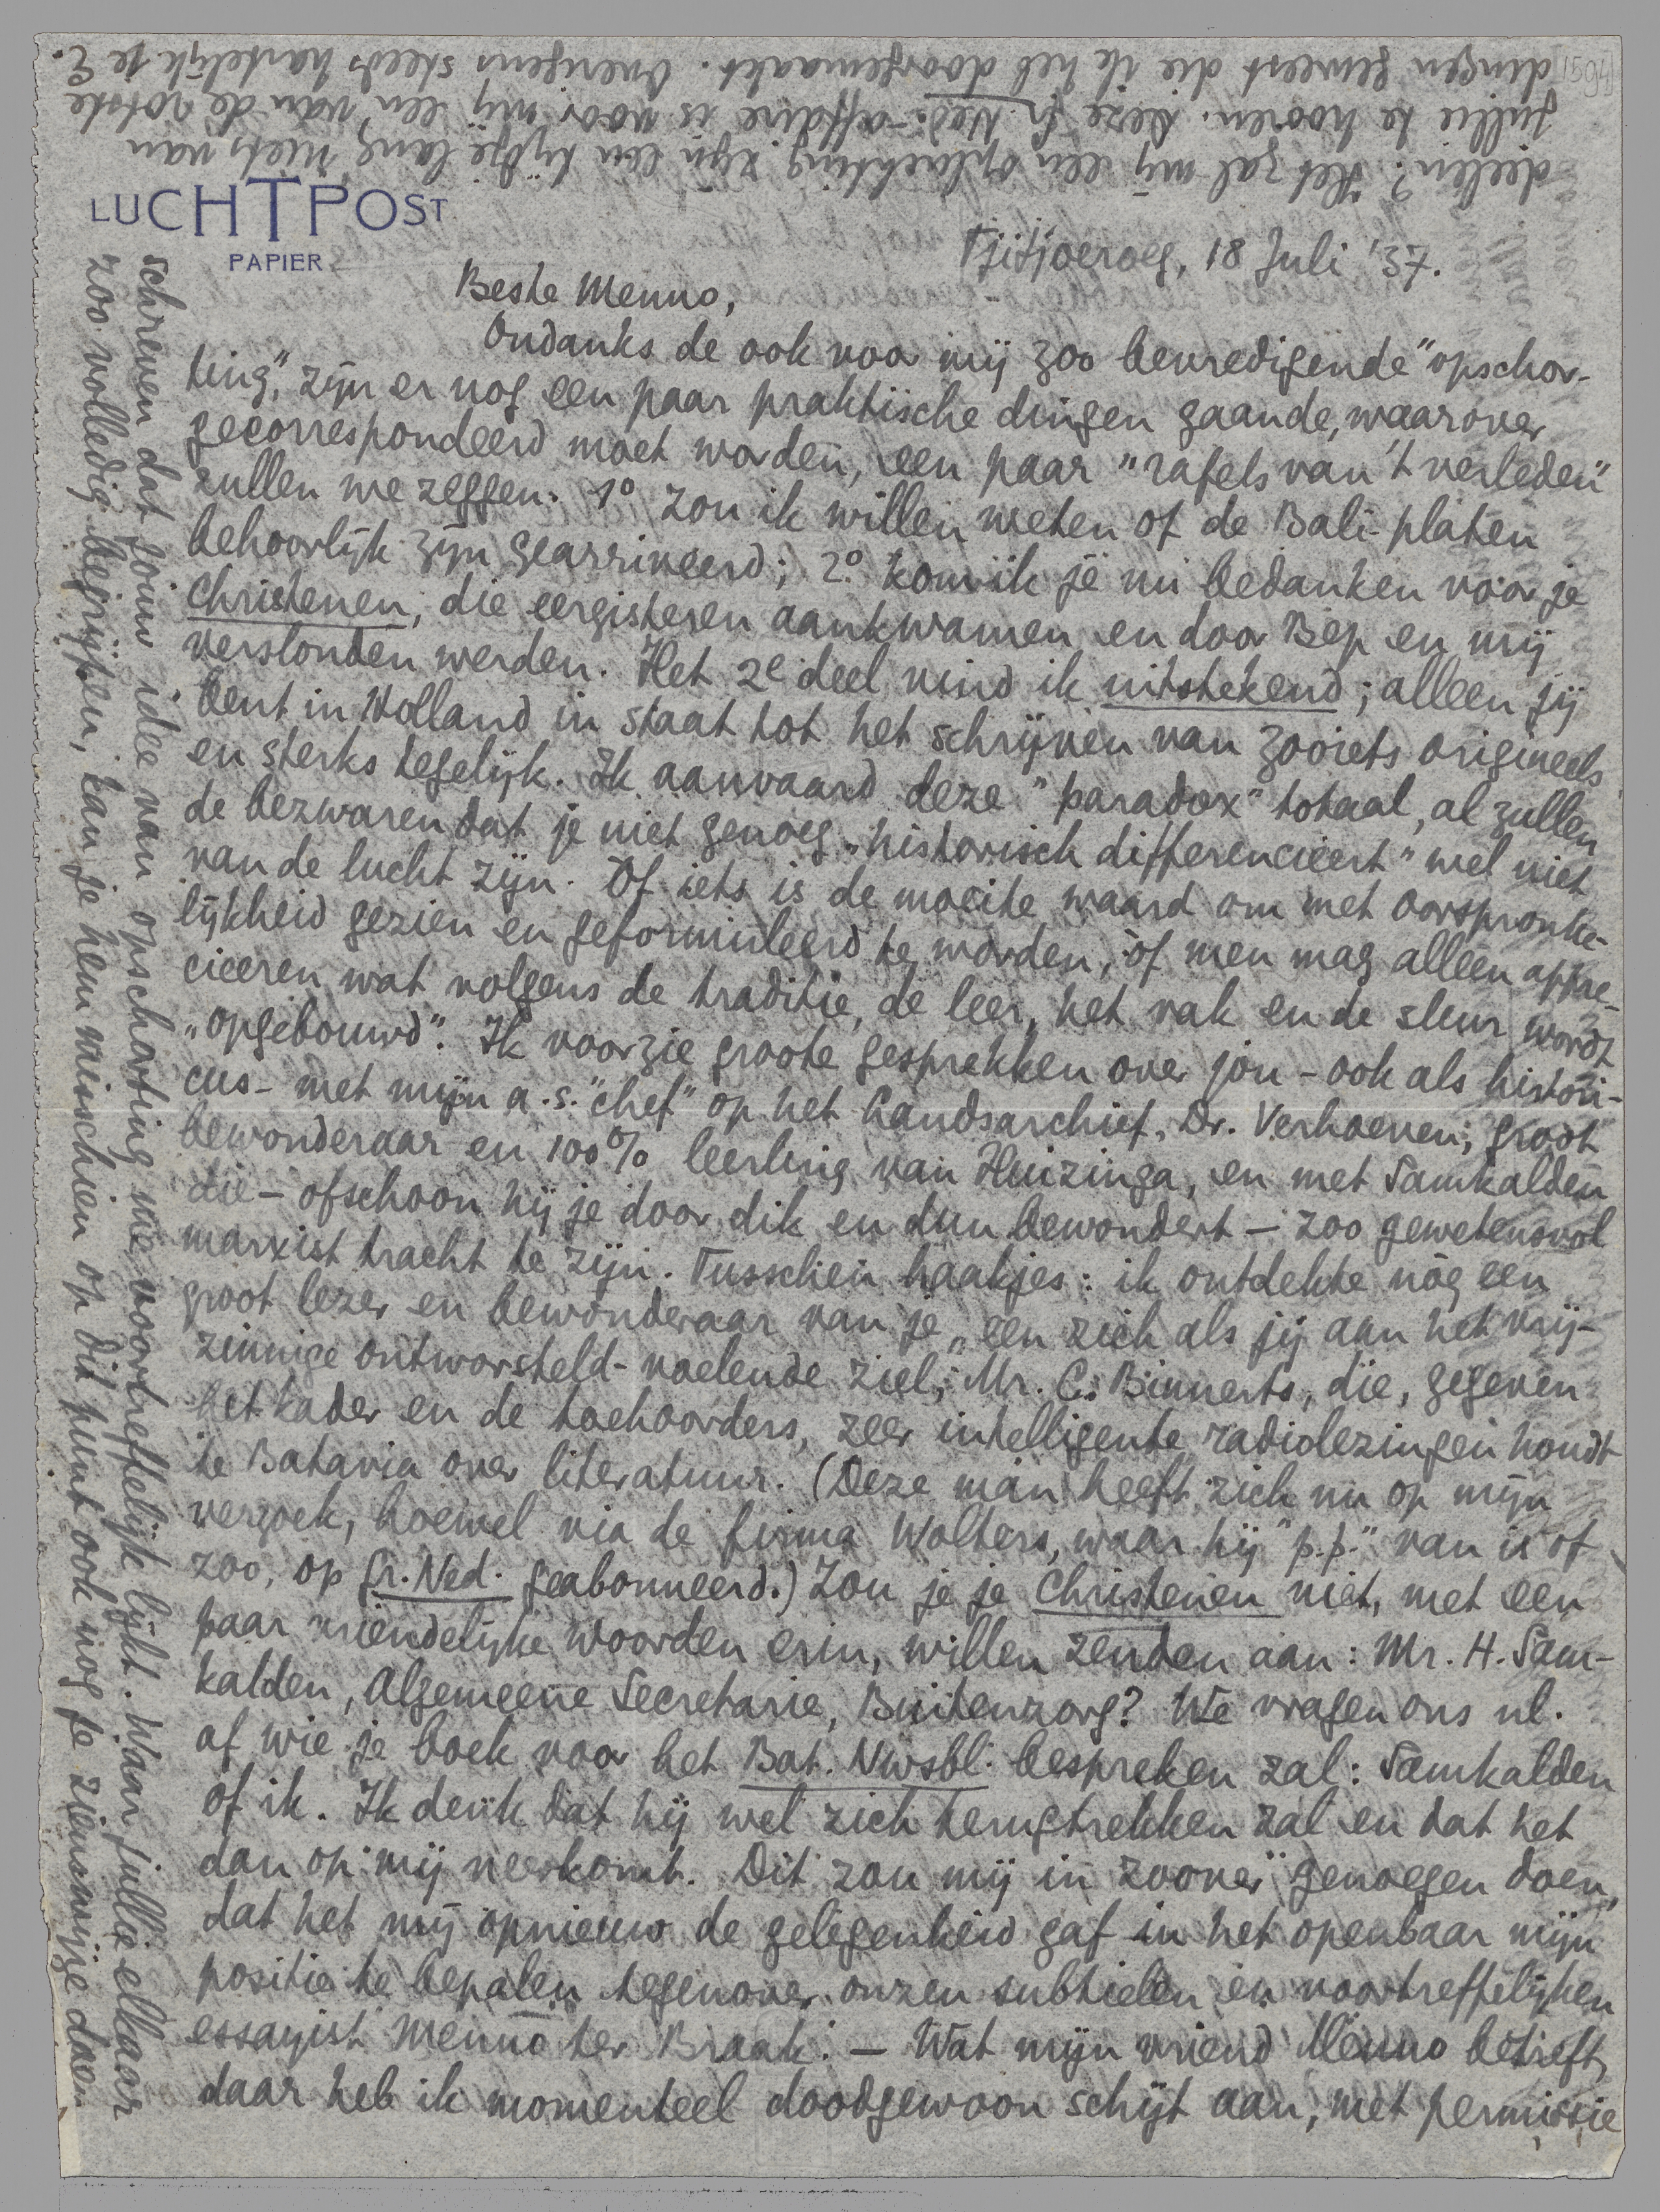 LUCHTPOST
PAPIER
1594
Tjitjoeroeg, 18 Juli '37.
Beste Menno,
Ondanks de ook voor mij zoo bevredigende "opschor-
ting", zijn er nog een paar praktische dingen gaande, waarover
gecorrespondeerd moet worden, een paar "rafels van 't verleden"
zullen we zeggen. 1º zou ik willen weten of de Bali-platen
behoorlijk zijn gearriveerd; 2º kom ik je nu bedanken voor je
Christenen, die eergisteren aankwamen en door Bep en mij
verslonden werden. Het 2e deel vind ik uitstekend; alleen jij
bent in Holland in staat tot het schrijven van zooiets origineels
en sterks tegelijk. Ik aanvaard deze "paradox" totaal, al zullen
de bezwaren dat je niet genoeg "historisch differencieert" wel niet
van de lucht zijn. Òf iets is de moeite waard om met oorspronke-
lijkheid gezien en geformuleerd te worden, òf men mag alleen appre-
cieeren wat volgens de traditie, de leer, het vak en de sleur wordt
"opgebouwd". Ik voorzie groote gesprekken over jou - ook als histori-
cus - met mijn a.s. "chef" op het Landsarchief, Dr. Verhoeven, groot
bewonderaar en 100% leerling van Huizinga, en met Samkalden
die - ofschoon hij je door dik en dun bewondert - zoo gewetensvol
marxist tracht te zijn. Tusschen haakjes: ik ontdekte nòg een
groot lezer en bewonderaar van je, een zich als jij aan het vrij-
zinnige ontworsteld-voelende ziel, Mr. C. Binnerts, die, gegeven
het kader en de toehoorders, zeer intelligente radiolezingen houdt
te Batavia over literatuur. (Deze man heeft zich nu op mijn
verzoek, hoewel via de firma Wolters, waar hij "p.p." van is of
zoo, op Gr. Ned. geabonneerd.) Zou je je Christenen niet, met een
paar vriendelijke woorden erin, willen zenden aan: Mr. H. Sam-
kalden, Algemeene Secretarie, Buitenzorg? We vragen ons nl.
af wie je boek voor het Bat. Nwsbl. bespreken zal: Samkalden
of ik. Ik denk dat hij wel zich terugtrekken zal en dat het
dan op mij neerkomt. Dit zou mij in zoover genoegen doen,
dat het mij opnieuw de gelegenheid gaf in het openbaar mijn
positie te bepalen tegenover onzen subtielen en voortreffelijken
essayist Menno ter Braak. - Wat mijn vriend Menno betreft,
daar heb ik momenteel doodgewoon schijt aan, met permissie
schreven dat jouw idee van opschorting me voortreffelijk lijkt. Waar jullie elkaar
zoo volledig begrijpen, kan je hem misschien op dit punt ook nog je zienswijze doen
deelen? Het zal mij een opluchting zijn een tijdje lang niets van
jullie te hooren. Deze Gr. Ned.-affaire is voor mij een van de rotste
dingen geweest die ik heb doorgemaakt. Overigens steeds hartelijk je E.